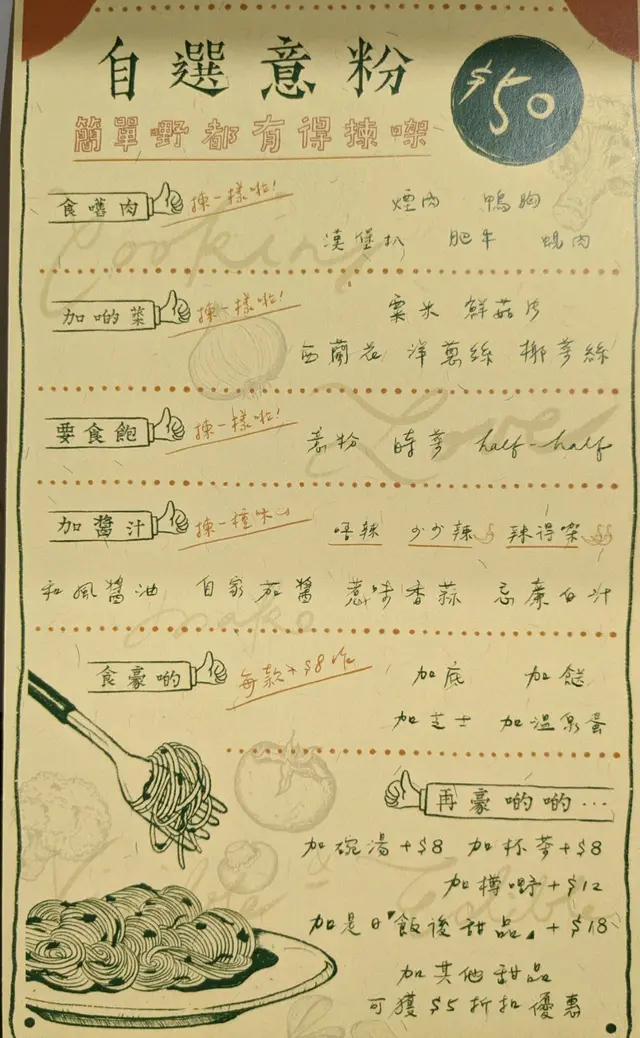 自選意粉
$50
簡單嘢都有得揀㗎
食嚿肉 揀一樣啦! 煙肉 鴨胸
漢堡扒 肥牛 蜆肉
加啲菜 揀一樣啦! 粟米 鮮菇片
西蘭花 洋蔥絲 椰菜絲
要食飽 揀一樣啦! 意粉 時菜 half-half
加醬汁 揀一種味 唔辣 少少辣 辣得㗎
和風醬油 自家茄醬 惹味香蒜 忌廉白汁
食豪啲 每款+$8咋 加底 加餸
加芝士 加溫泉蛋
再豪啲啲...
加碗湯+$8 加杯茶+$8
加樽嘢+$12
加是日「飯後甜品」+$18
加其他甜品
可獲$5折扣優惠
Cooking
Love